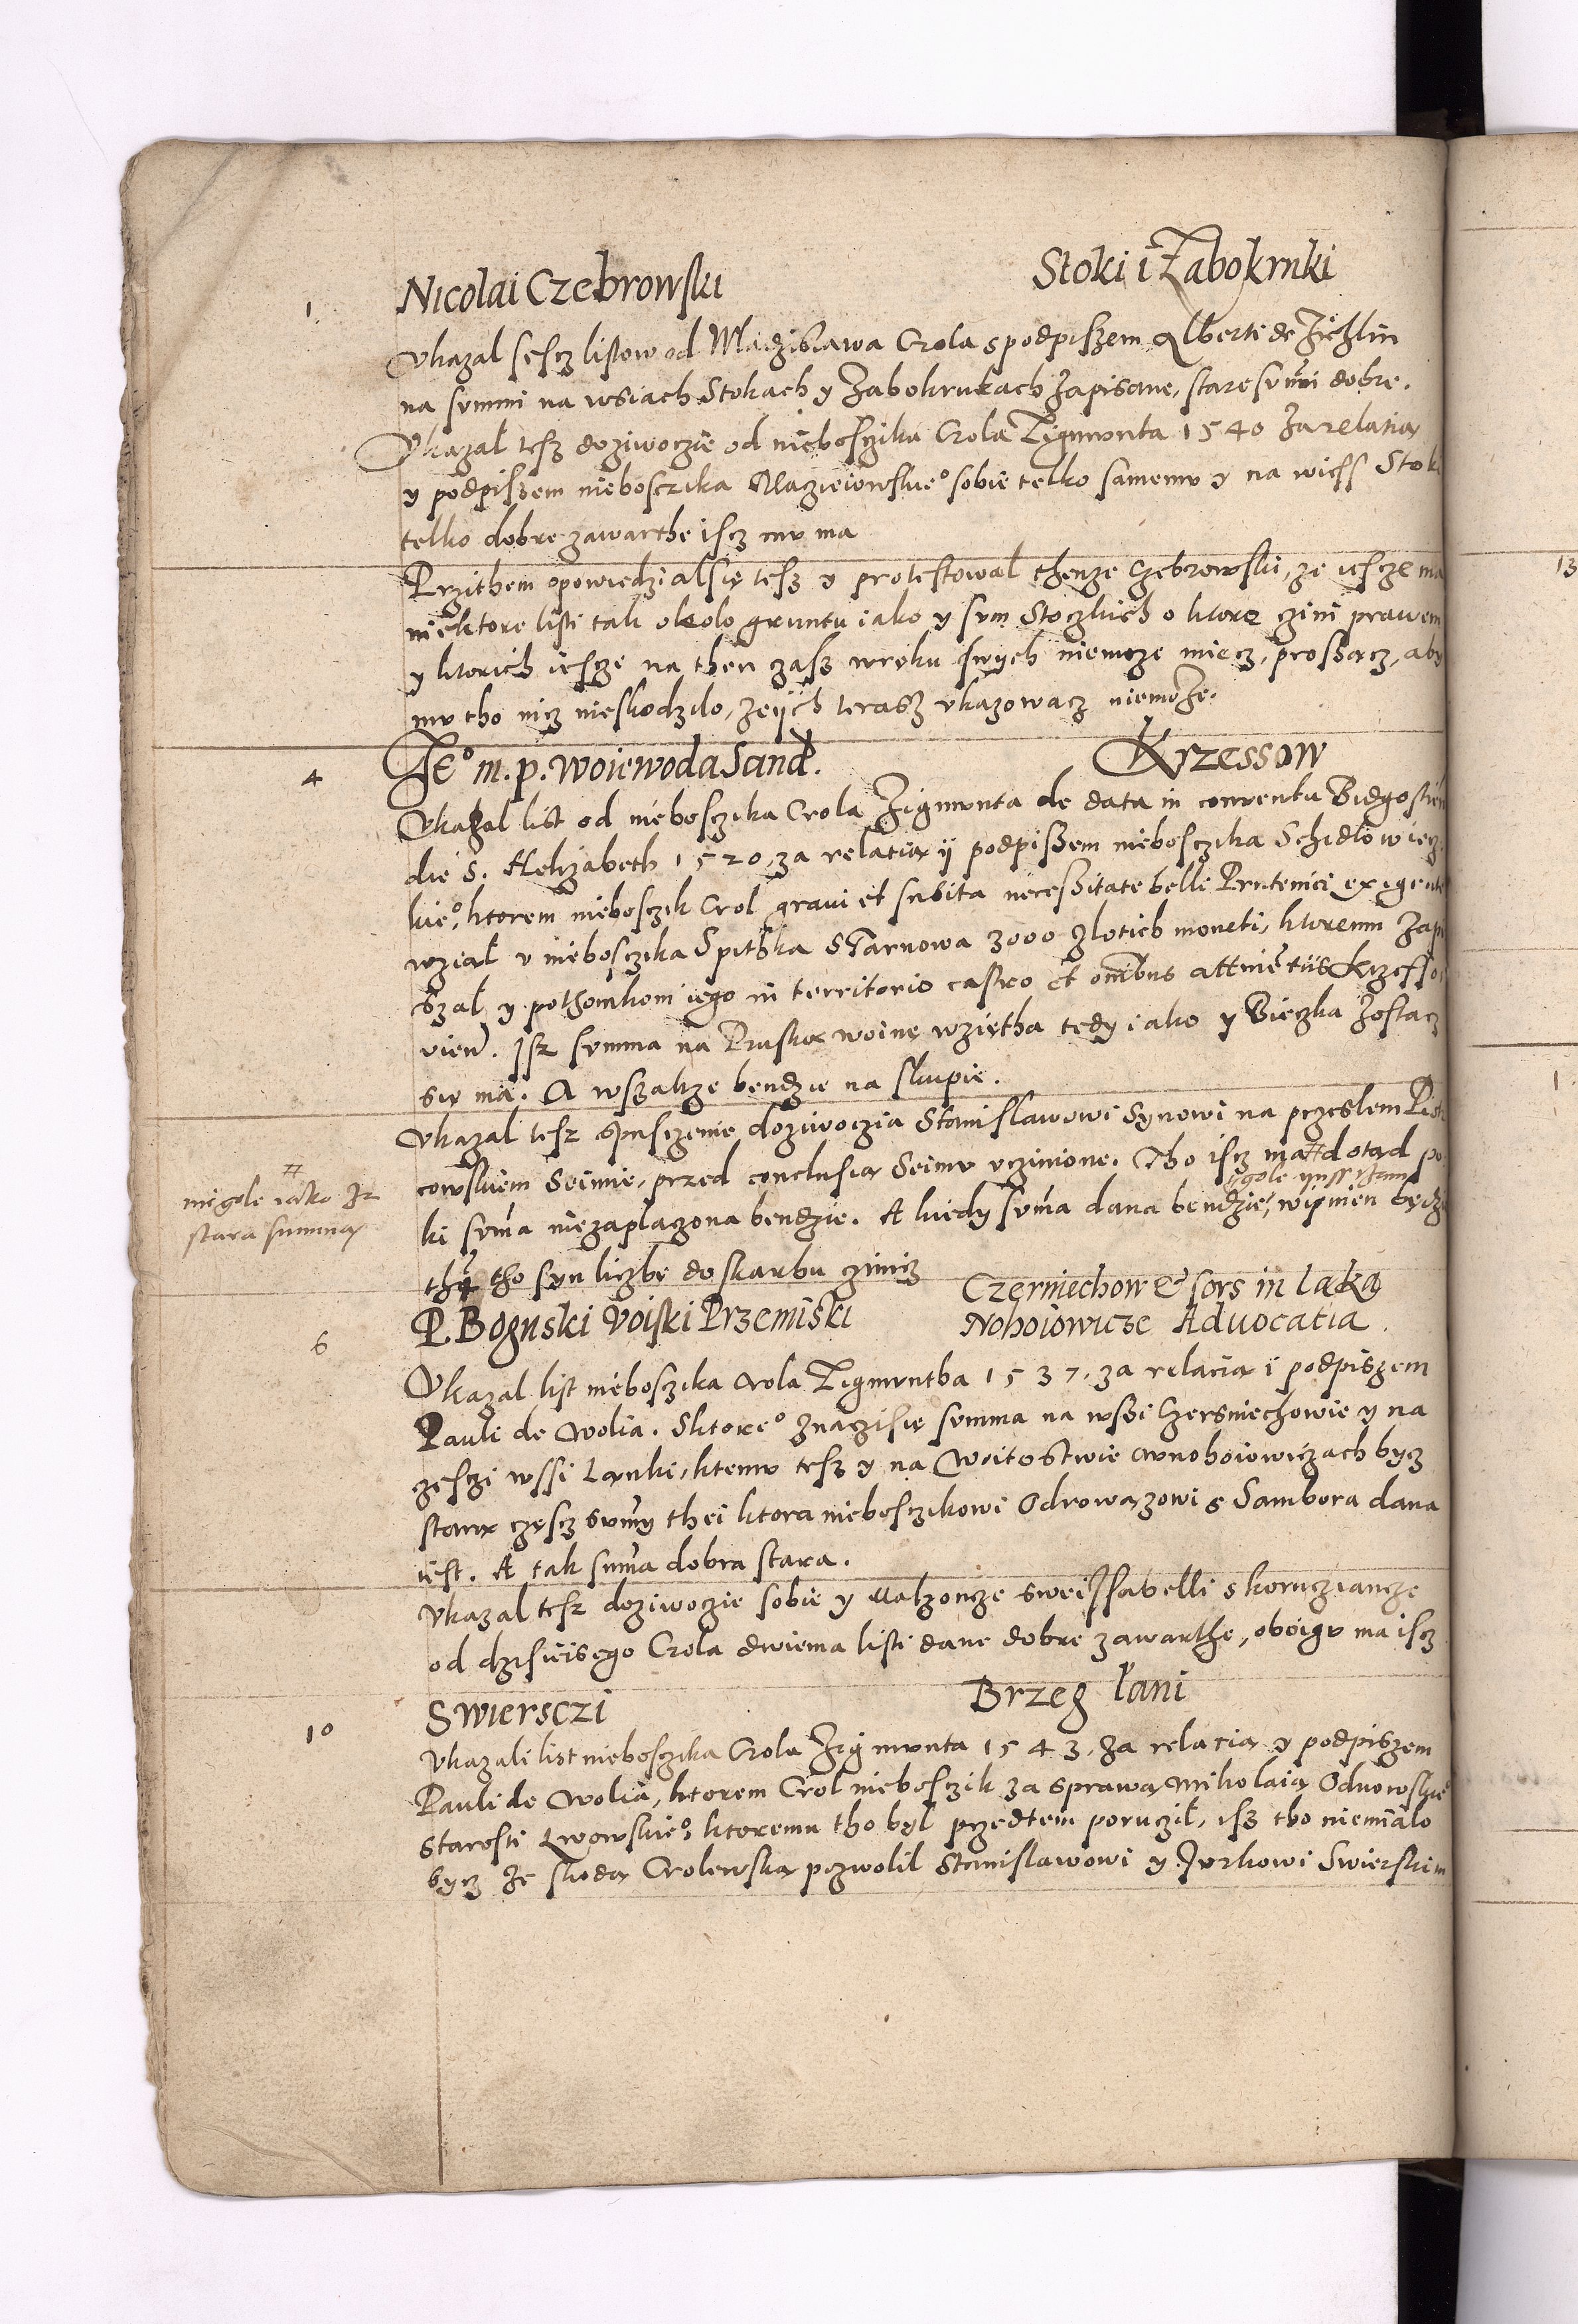 Nicolai Czebrowski Stoki i Zabokruki
1.
Ukazal sescz listow od Wladzislawa Crola s podpiszem Alberti de Zichlin
na summi na wsiach Stokach y Zabokrukach zapisane, stare summi dobre.
Ukazal tesz doziwoczie od nieboszczika Crola Zigmunta 1540 za relatią
y podpiszem nieboszczika Macieiowskie° sobie telko samemu y na wiess Stoki
telko dobre zawarthe iscz mu ma
Przithem opowiedzial się tesz y protestowal thenze Czebrowski, ze iescze ma
niektore listi tak okolo gruntu iako y sum Stoczkich o ktore czini prawem
y ktorich iescze na then czasz w ręku swych niemoze miecz, proszącz, aby
mu tho nicz nieskodzilo, ze iich terasz ukazowacz niemoze.
4 Je° m. p. Woiewoda Sand. Krzessow
Ukazal list od nieboszczika Crola Zigmunta de data in conventu Bidgostien
die S. Helizabeth 1520, za relatią y podpiszem nieboszczika Schidlowiecz
kie°, ktorem nieboszczik Crol gravi et subita necessitate belli Prutenici exigente
wzial u nieboszczika Spithka s Tarnowa 3000 zlotich moneti, ktoremu zapi
szal y pothomkom iego in territorio castro et omnibus attinentiis Krzesso
vien. Isz summa na Pruską woinę wziętha tedy iako y Bieczka zostacz
się ma. A wszakze bendzie na skupie.
Ukazal tesz spuszczenie doziwoczia Stanislawowi Synowi na przeslem Piotr
cowskiem Seimie, przed conclusią Seimu uczinione. Tho iscz ma # dotąd po
ki summa niezaplaczona bendzie. A kiedy summa dana bendzie, wipinien będzie
#
nigole iako ze
stara summa
thy tho syn liczbę do skarbu czinicz
P. Boguski Voiski Przemiski Czerniechow & sors in Laka
6 Nohoiowicze Advocatia.
Ukazal list nieboszczika Crola Zigmuntha 1537. za relatią i podpiszem
Pauli de Wolia. S ktore° znaczi się summa na wsi Czerniechowie y na
częsczi wssi Ląnki, ktemu tesz y na Woitostwie w Nohoiowiczach bycz
starą częscz summy thei ktora nieboszczikowi Odrowązowi s Sambora dana
iest. A tak summa dobra stara.
Ukazal tesz doziwoczie sobie y Malzoncze swei Isabelli s Korucziancze
od dzisieisego Crola dwiema listi dane dobre zawarthe, oboigu ma iscz
10 Swiersczi Brzeg lani
Ukazali list nieboszczika Crola Zigmunta 1543, za relatią y podpiszem
Pauli de Wolia, ktorem Crol nieboszczik za sprawą Mikolaia Odnowskie°
Starosti Lwowskie°, ktoremu tho byl przedtem poruczil, isz tho niemialo
bycz ze skodą Crolewską pozwolil Stanislawowi y Jurkowi Swierskim